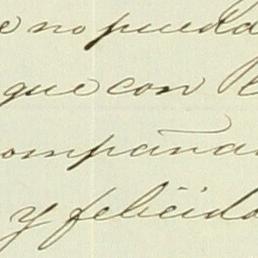 e no pueda
que con
ompaña
y felicida